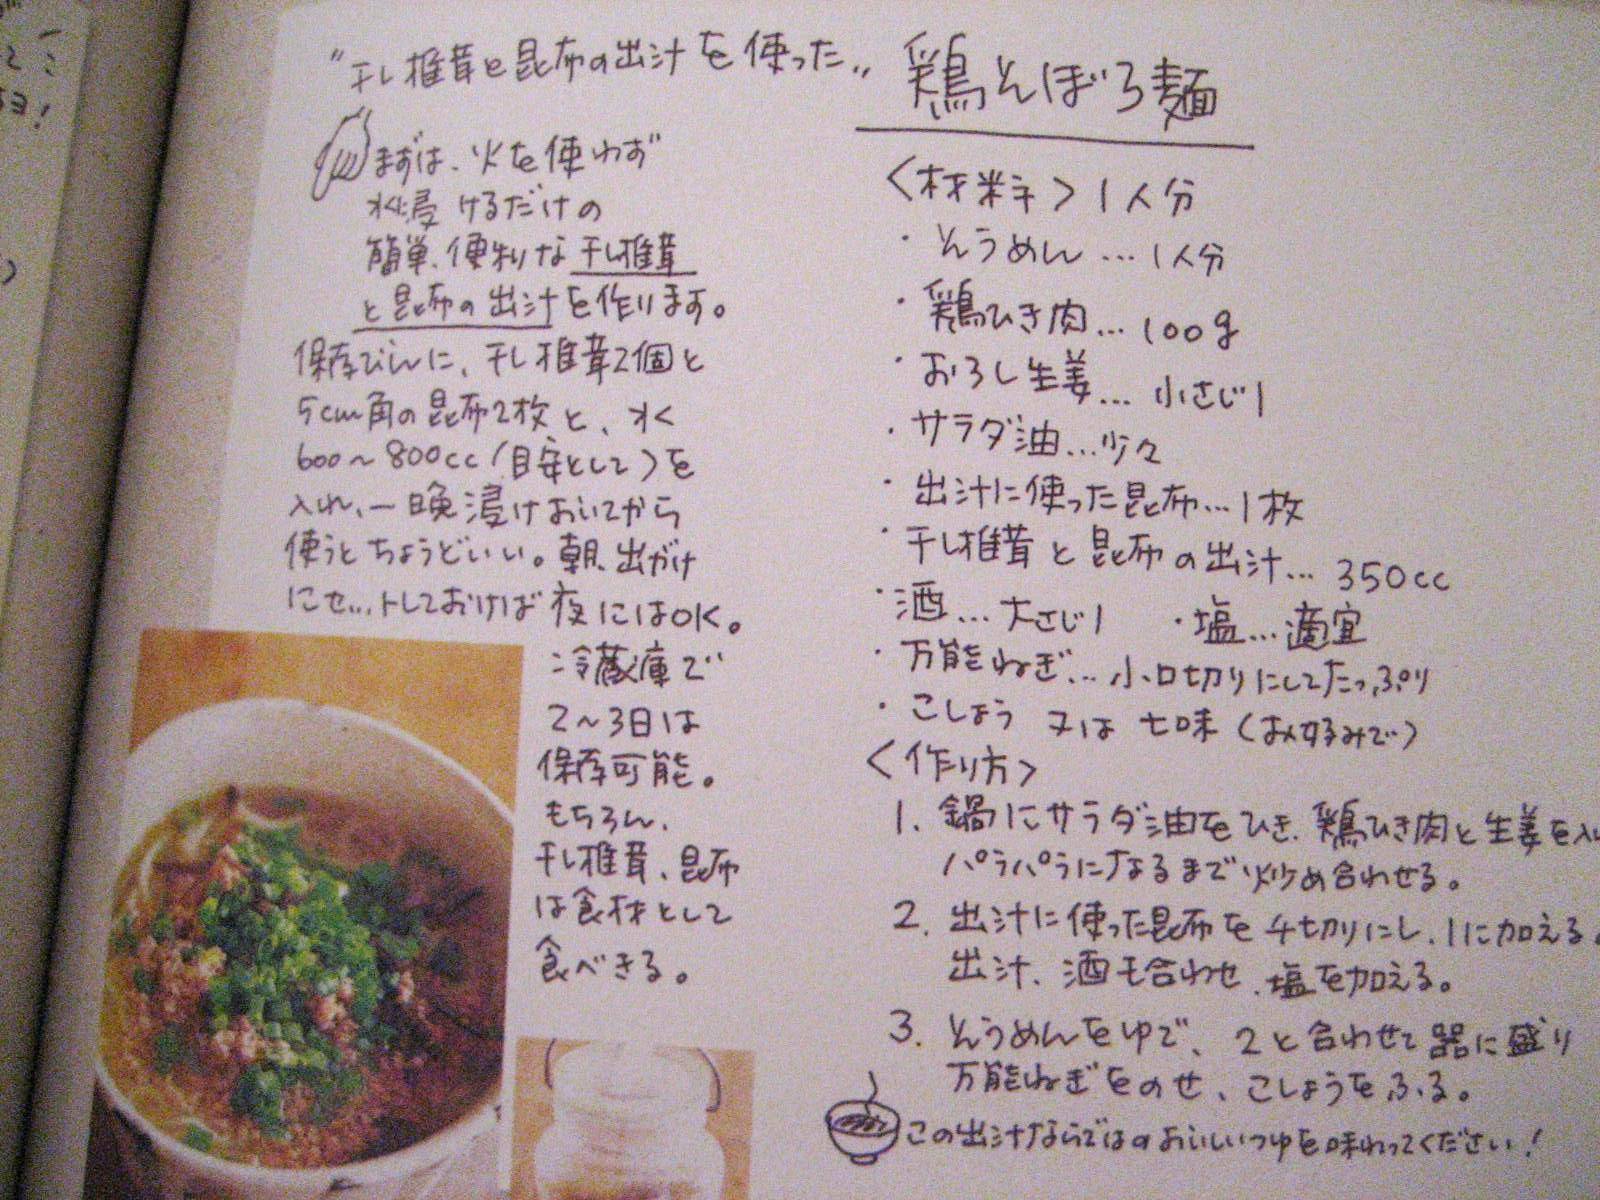 "干し椎茸と昆布の出汁を使った" 鶏そぼろ麺
まずは、火を使わず
水に浸けるだけの
簡単、便利な干し椎茸
と昆布の出汁を作ります。
保存びんに、干し椎茸2個と
5cm角の昆布2枚と、水
600〜800cc(目安として)を
入れ、一晩浸けおいてから
使うとちょうどいい。朝、出がけ
にセットしておけば夜にはOK。
冷蔵庫で
2〜3日は
保存可能。
もちろん、
干し椎茸、昆布
は食材として
食べきる。
<材料>1人分
・そうめん…1人分
・鶏ひき肉…100g
・おろし生姜…小さじ1
・サラダ油…少々
・出汁に使った昆布…1枚
・干し椎茸と昆布の出汁…350cc
・酒…大さじ1 ・塩…適宜
・万能ねぎ…小口切りにしてたっぷり
・こしょう 又は 七味(お好みで)
<作り方>
1. 鍋にサラダ油をひき、鶏ひき肉と生姜を入
パラパラになるまで炒め合わせる。
2. 出汁に使った昆布を千切りにし、1に加える。
出汁、酒も合わせ、塩を加える。
3. そうめんをゆで、2と合わせて器に盛り
万能ねぎをのせ、こしょうをふる。
この出汁ならではのおいしいつゆを味わってください!